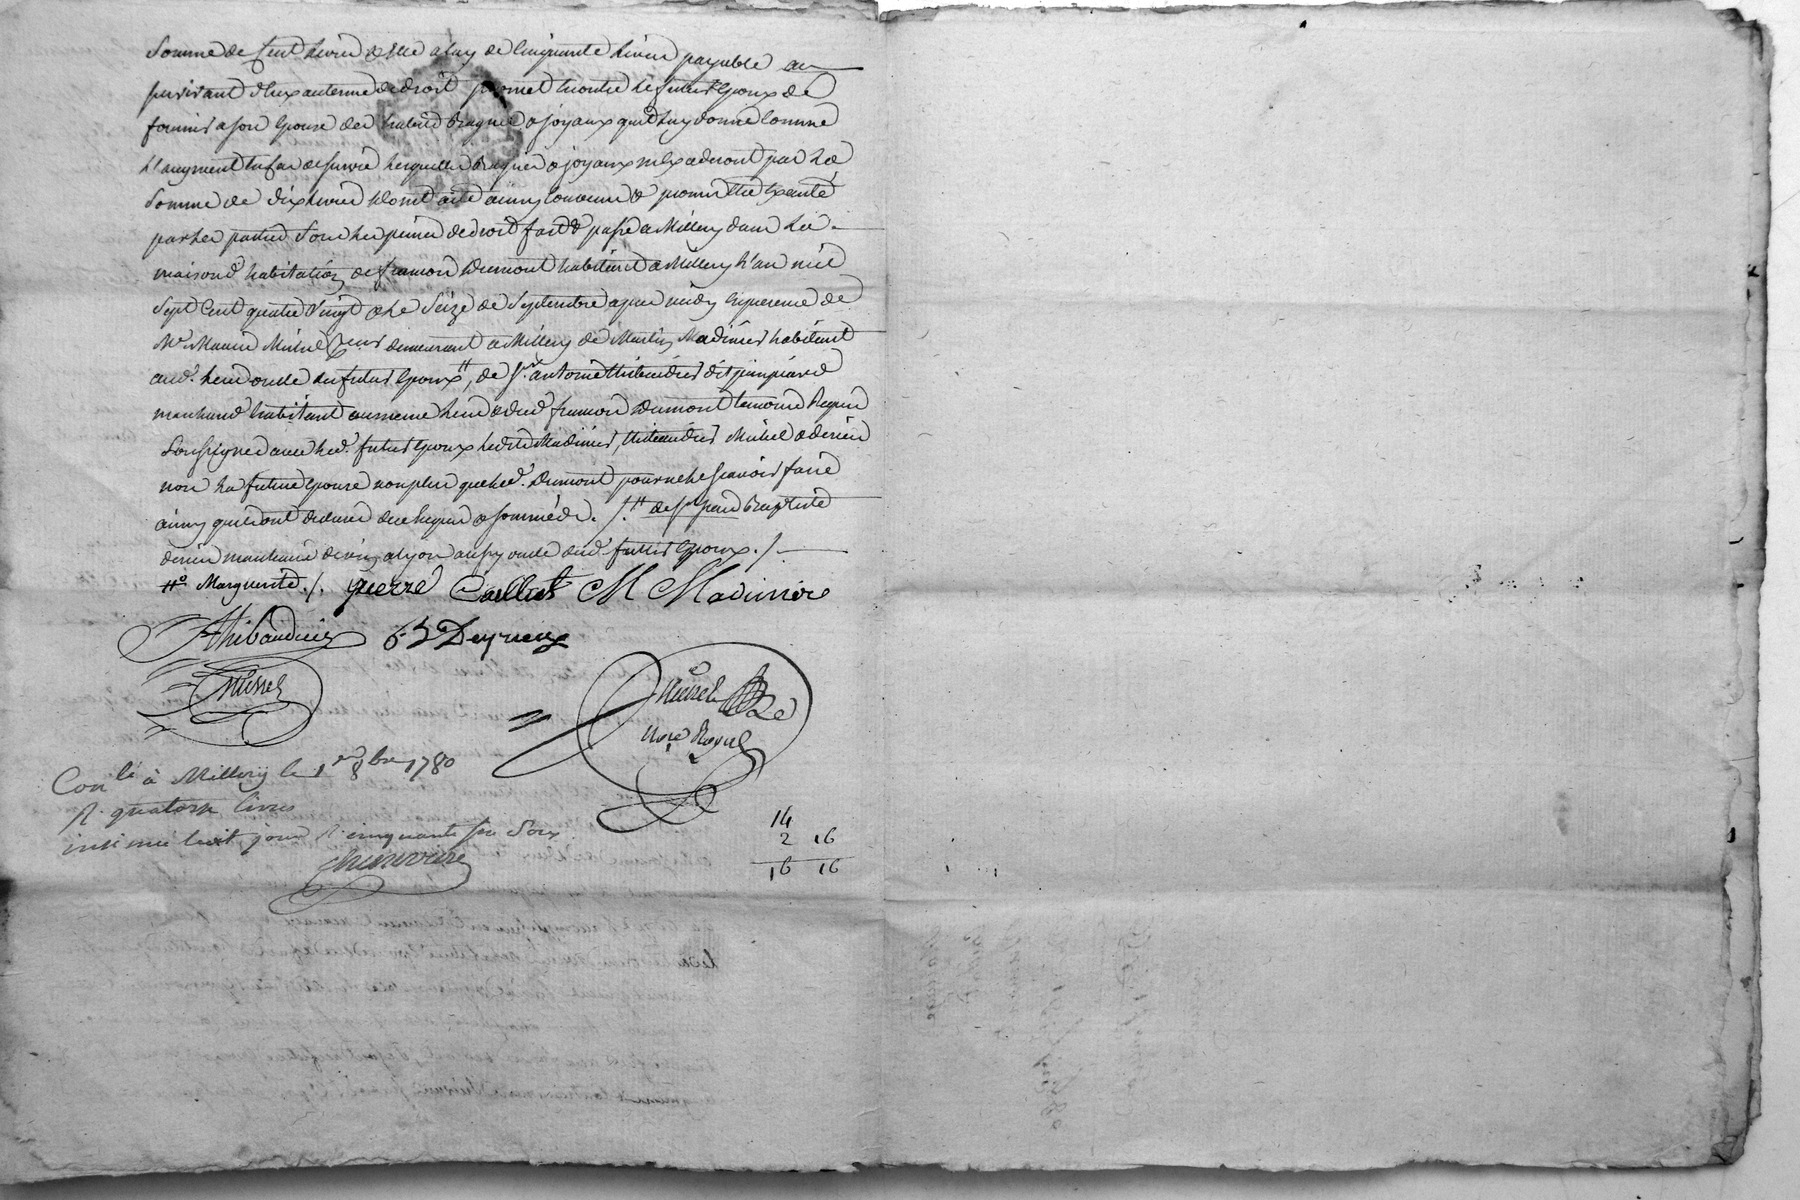 somme de cent livres & elle a luy de cinquante livres payable au
survivant d'eux au terme de droit promet en outre le futur Epoux de
fournir a son Epouse des habits Bagues & joyaux qu'il luy donne comme
l'augment en cas de survie lesquelles Bagues & joyaux n'excederont pas la
somme de dix livres le tout a été ainsy convenu & promis être Exécuté
par les parties sous les peines de droit fait & passé a Millery dans la
maison d'habitation de françois Dumont habitant a Millery l'an mil
sept Cent quatre vingt & le seize de septembre apres midy En presence de
Mr Michel demeurant a Millery de Martin Madinier habitant
aud. lieu oncle du futur Epoux #, de Sr. antoine thibaudier dit
marchand habitant au meme lieu & dud françois Dumont temoins Requis
soussignés avec led. futur Epoux lesdits Madinier, thibaudier Michel &
non la future Epouse non plus que led. Dumont pour ne le sçavoir faire
ainsy qu'ils ont déclaré de ce Enquis & sommés. /. # de Sr jean Baptiste
marchand a lyon aussy oncle dud. futur Epoux. /.
#o Marguerite. /. pierre Caillot M Madiniere
AThibaudier Deyrieux
Michel
Michel
Nore Royal
Conlé à Millery le 1er 8bre 1780
R. quatorze livres
insinué led jour R. cinquante six sols
14
2 16
16 16